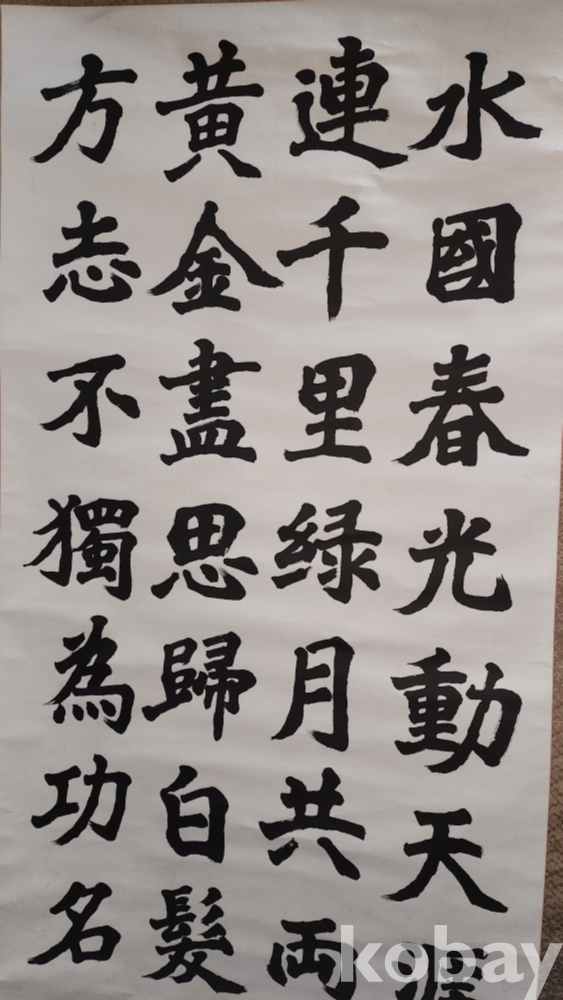 水國春光動天
連千里緑月共両
黃金盡思歸白髮
方志不獨為功名
kobay